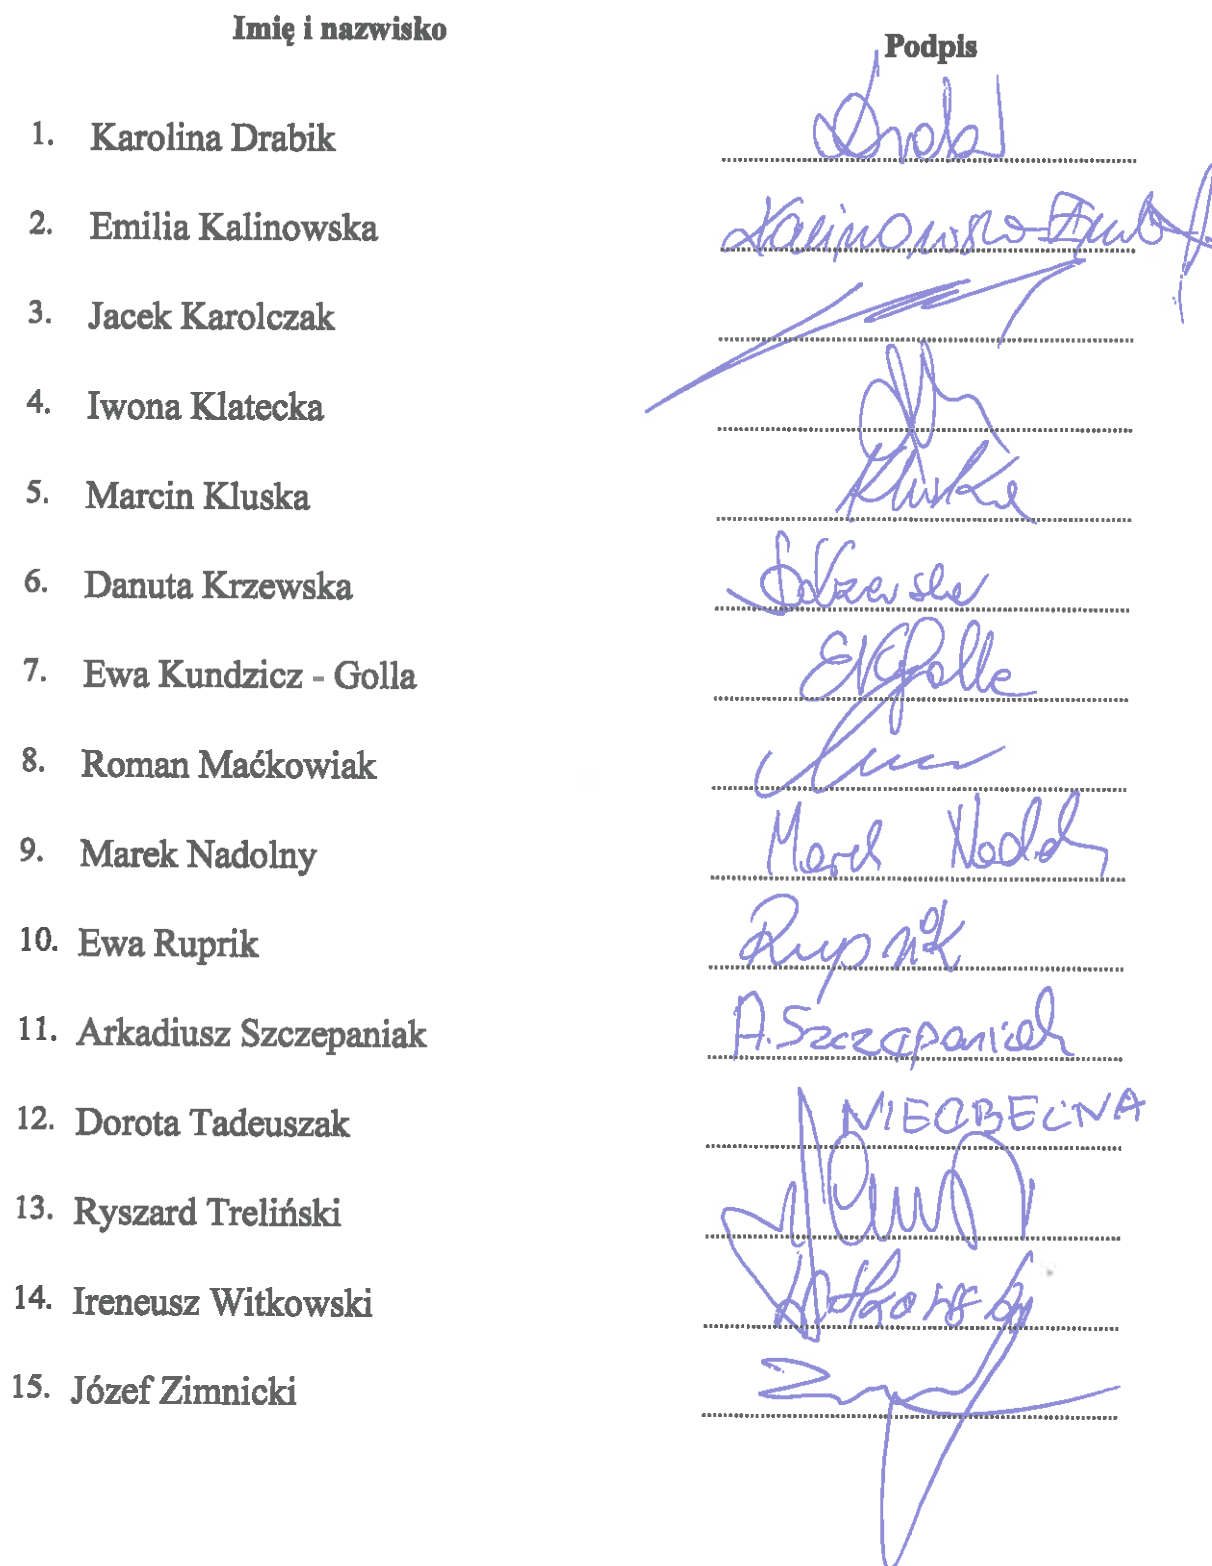 Imię i nazwisko
Podpis
1. Karolina Drabik
2. Emilia Kalinowska Kalinowska-
3. Jacek Karolczak
4. Iwona Klatecka
5. Marcin Kluska Kluska
6. Danuta Krzewska DKrzewska
7. Ewa Kundzicz - Golla EKGolla
8. Roman Maćkowiak
9. Marek Nadolny Marek
10. Ewa Ruprik Rupnik
11. Arkadiusz Szczepaniak A. Szczepaniak
12. Dorota Tadeuszak NIEOBECNA
13. Ryszard Treliński
14. Ireneusz Witkowski Witkowski
15. Józef Zimnicki